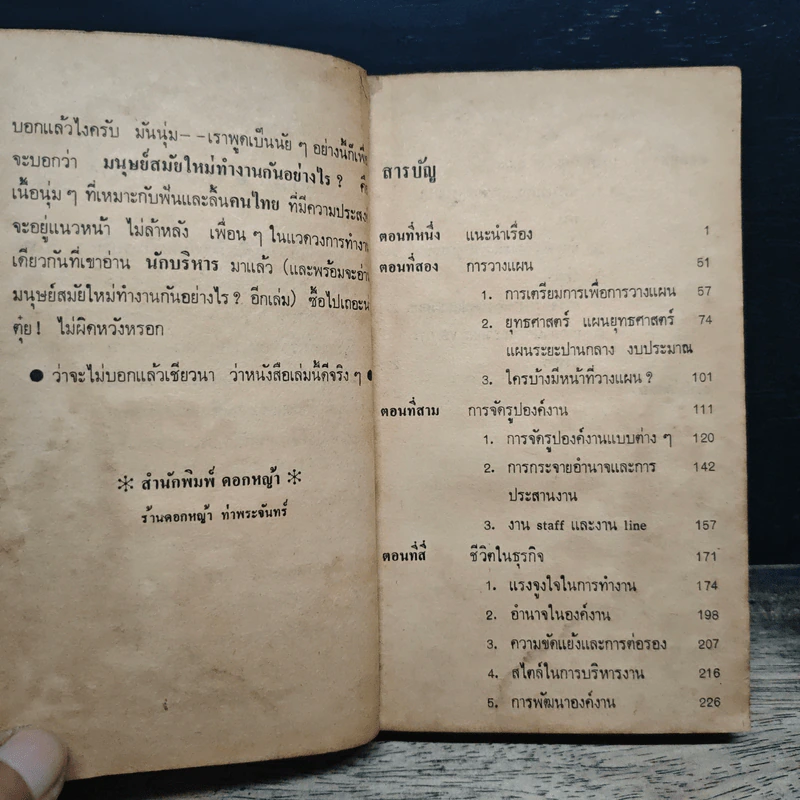 บอกแล้วไงครับ มันนุ่ม--เราพูดเป็นนัย ๆ อย่างนี้ก็เพื่อ
จะบอกว่า มนุษย์สมัยใหม่ทำงานกันอย่างไร ?
เนื้อนุ่ม ๆ ที่เหมาะกับฟันและลิ้นคนไทย ที่มีความประสงค์
จะอยู่แนวหน้า ไม่ล้าหลัง เพื่อน ๆ ในแวดวงการทำงาน
เดียวกันที่เขาอ่าน นักบริหาร มาแล้ว (และพร้อมจะอ่าน
มนุษย์สมัยใหม่ทำงานกันอย่างไร ? อีกเล่ม) ซื้อไปเถอะน
ตุ๋ย ! ไม่ผิดหวังหรอก
● ว่าจะไม่บอกแล้วเชียวนา ว่าหนังสือเล่มนี้ดีจริง ๆ ●
✻ สำนักพิมพ์ ดอกหญ้า ✻
ร้านดอกหญ้า ท่าพระจันทร์
สารบัญ
ตอนที่หนึ่ง แนะนำเรื่อง 1
ตอนที่สอง การวางแผน 51
1. การเตรียมการเพื่อการวางแผน 57
2. ยุทธศาสตร์ แผนยุทธศาสตร์ 74
แผนระยะปานกลาง งบประมาณ
3. ใครบ้างมีหน้าที่วางแผน ? 101
ตอนที่สาม การจัดรูปองค์งาน 111
1. การจัดรูปองค์งานแบบต่าง ๆ 120
2. การกระจายอำนาจและการ 142
ประสานงาน
3. งาน staff และงาน line 157
ตอนที่สี่ ชีวิตในธุรกิจ 171
1. แรงจูงใจในการทำงาน 174
2. อำนาจในองค์งาน 198
3. ความขัดแย้งและการต่อรอง 207
4. สไตล์ในการบริหารงาน 216
5. การพัฒนาองค์งาน 226